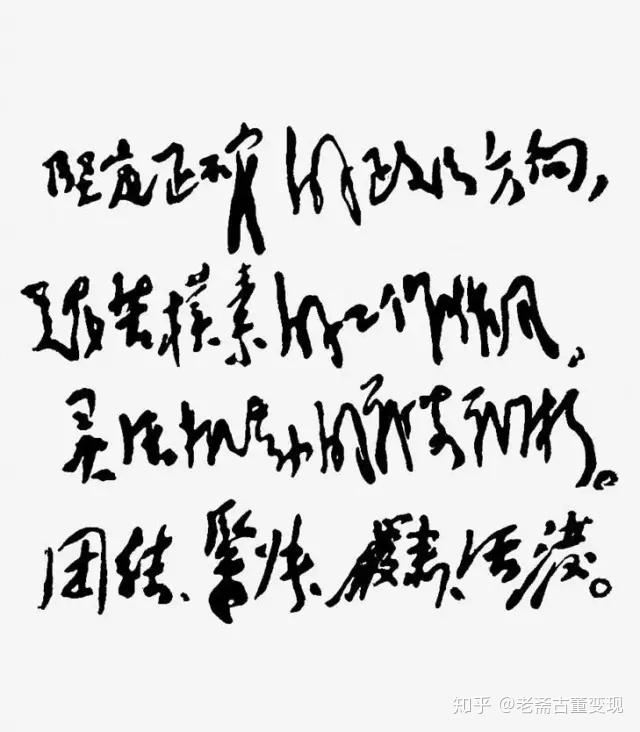 堅定正确的政治方向，
艰苦樸素的工作作风，
灵活机动的战略战术。
团结、緊张、嚴肃、活潑。
知乎 @老斋古董变现